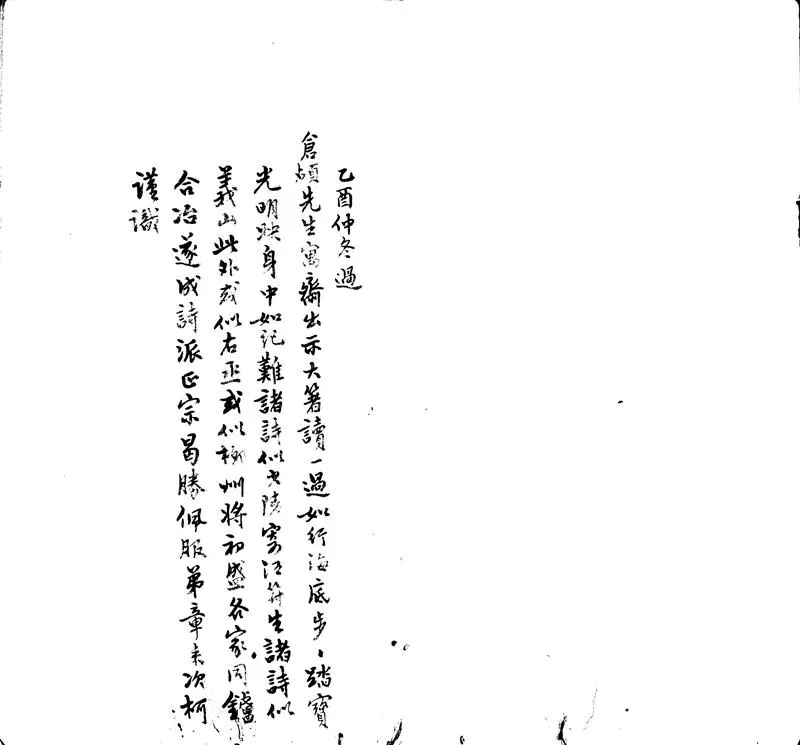 乙酉仲冬過
倉頡先生寓齋出示大著讀一過如行海底步〻踏寶
光明映身中如紀難諸詩似少陵寄江弁生諸詩似
義山此外或似右丞或似柳州將初盛各家同鑪
合冶遂成詩派正宗曷勝佩服弟章耒次柯
謹識